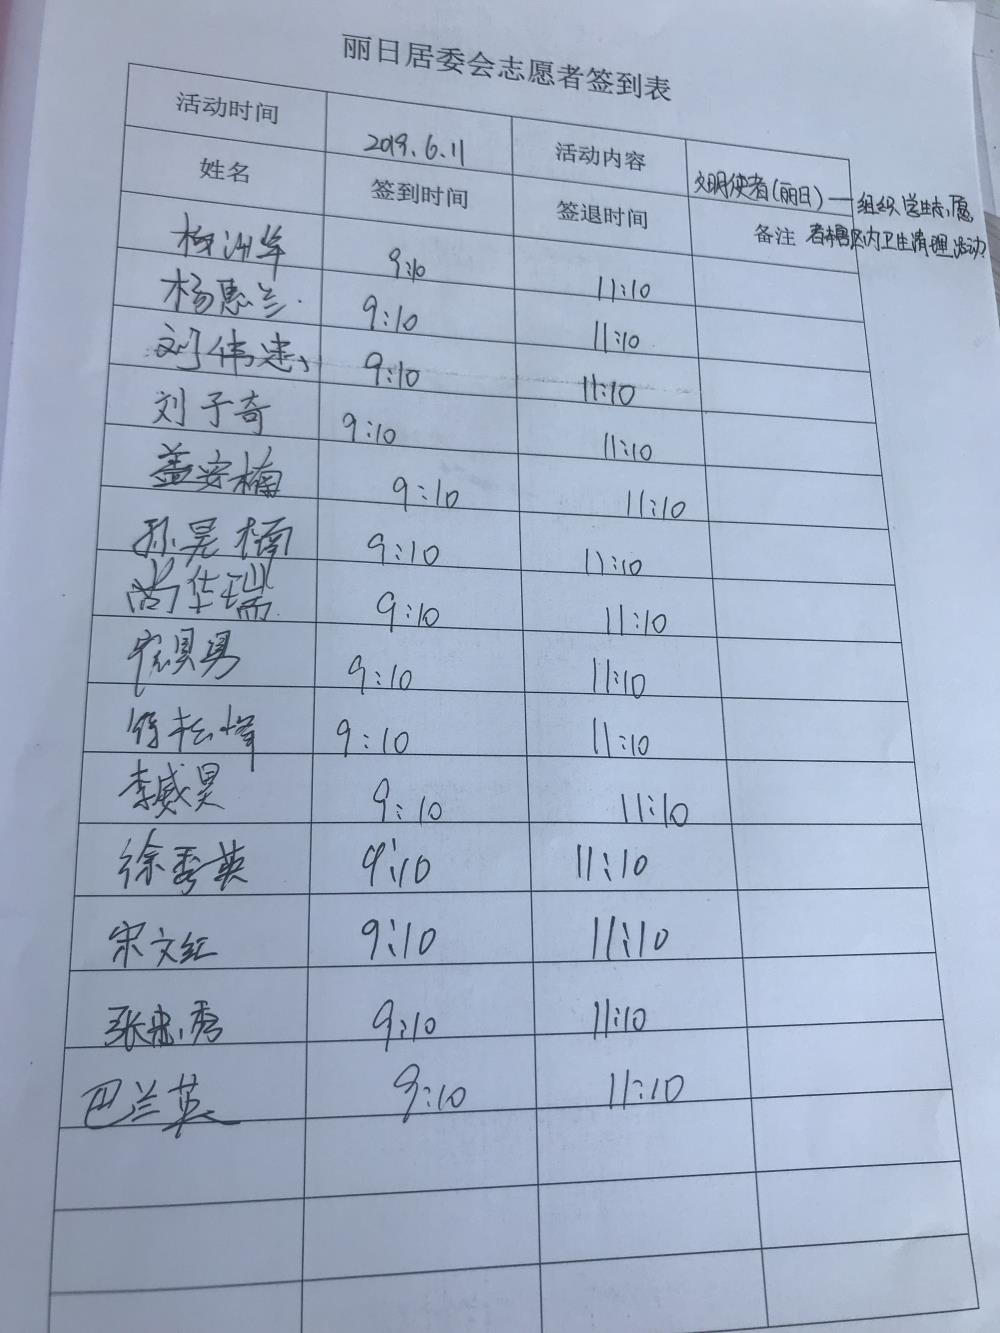 丽日居委会志愿者签到表
活动时间 2019.6.11 活动内容 文明使者(丽日)——组织学生志愿
姓名 签到时间 签退时间 备注 者辖区内卫生清理活动
柳洲华 9:10 11:10
杨惠兰 9:10 11:10
刘伟忠 9:10 11:10
刘子奇 9:10 11:10
盖安楠 9:10 11:10
孙昊楠 9:10 11:10
尚华瑞 9:10 11:10
9:10 11:10
松峰 9:10 11:10
李威昊 9:10 11:10
徐秀英 9:10 11:10
宋文红 9:10 11:10
张忠秀 9:10 11:10
巴兰英 9:10 11:10